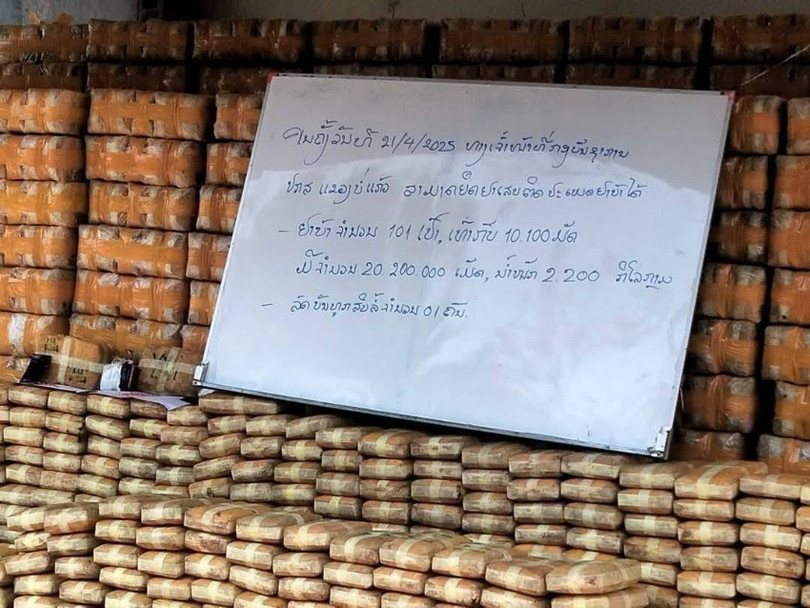 ຄນຄັ້ງວັນທີ 21/4/2025 ທາງເຈົ້າໜ້າທີ່ກອງພັນຊາຍແດນ
ປກສ ແຂວງບໍ່ແກ້ວ ສາມາດຍຶດຢາເສບຕິດປະເພດຢາບ້າໄດ້
– ຢາບ້າຈຳນວນ 101 ເປົ໋າ, ເທົ່າກັບ 10.100 ມັດ
ມີຈຳນວນ 20.200.000 ເມັດ, ນ້ຳໜັກ 2.200 ກິໂລກຼາມ
– ລົດບັນທຸກສິບລໍ້ຈຳນວນ 01 ຄັນ.